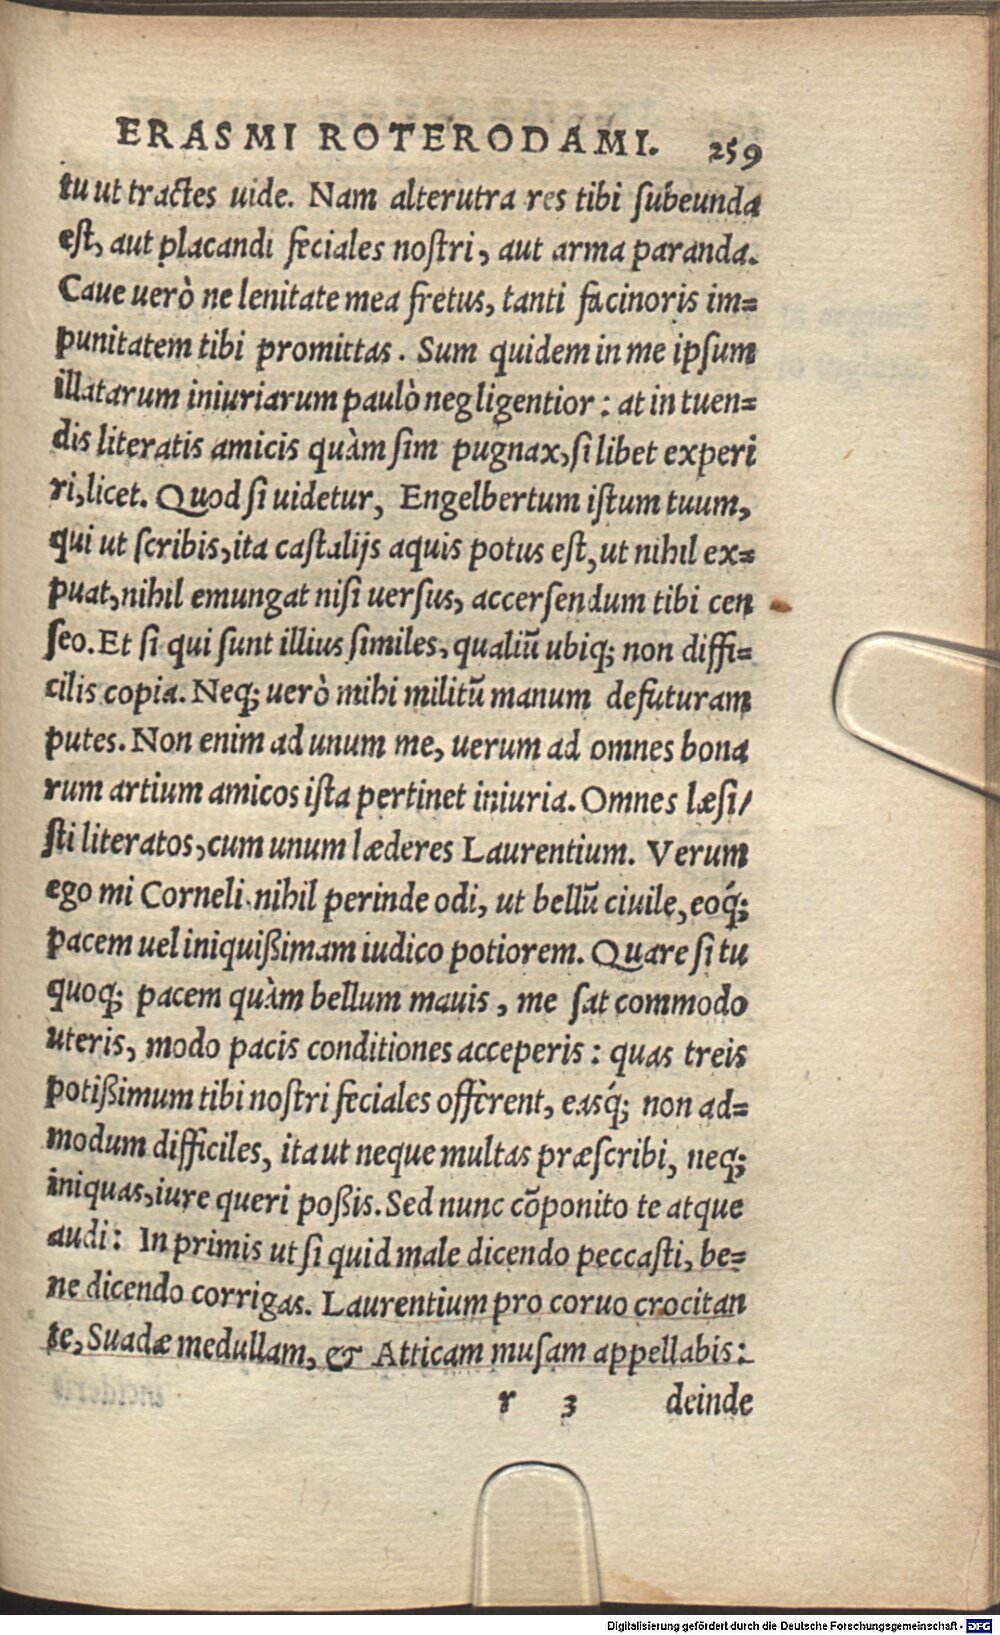 ERASMI ROTERODAMI. 259
tu ut tractes uide. Nam alterutra res tibi ſubeunda
eſt, aut placandi feciales noſtri, aut arma paranda.
Caue uerò ne lenitate mea fretus, tanti facinoris im=
punitatem tibi promittas. Sum quidem in me ipſum
illatarum iniuriarum paulò negligentior: at in tuen=
dis literatis amicis quàm ſim pugnax, ſi libet experi
ri, licet. Quod ſi uidetur, Engelbertum iſtum tuum,
qui ut ſcribis, ita caſtalijs aquis potus eſt, ut nihil ex=
puat, nihil emungat niſi uerſus, accerſendum tibi cen
ſeo. Et ſi qui ſunt illius ſimiles, qualiũ ubiq; non diffi=
cilis copia. Neq; uerò mihi militũ manum defuturam
putes. Non enim ad unum me, uerum ad omnes bona
rum artium amicos iſta pertinet iniuria. Omnes læſi/
ſti literatos, cum unum læderes Laurentium. Verum
ego mi Corneli nihil perinde odi, ut bellũ ciuile, eoq́;
pacem uel iniquißimam iudico potiorem. Quare ſi tu
quoq; pacem quàm bellum mauis, me ſat commodo
uteris, modo pacis conditiones acceperis: quas treis
potißimum tibi noſtri feciales offerent, easq́; non ad=
modum difficiles, ita ut neque multas præſcribi, neq;
iniquas, iure queri poßis. Sed nunc cõponito te atque
audi: In primis ut ſi quid male dicendo peccaſti, be=
ne dicendo corrigas. Laurentium pro coruo crocitan
te, Suadæ medullam, & Atticam muſam appellabis:
r 3 deinde
Digitalisierung gefördert durch die Deutsche Forschungsgemeinschaft - DFG